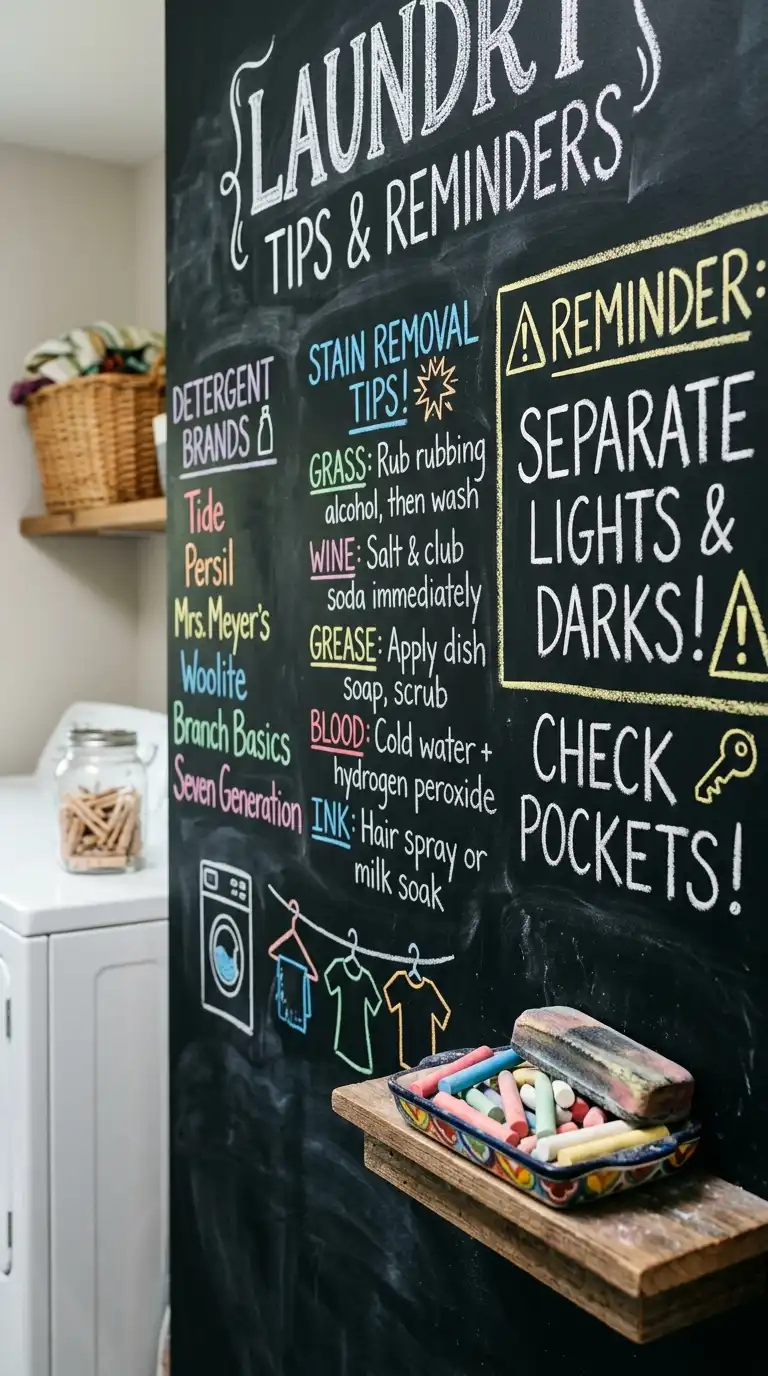 LAUNDRY
TIPS & REMINDERS
DETERGENT
BRANDS
Tide
Persil
Mrs. Meyer's
Woolite
Branch Basics
Seven Generation
STAIN REMOVAL
TIPS!
GRASS: Rub rubbing
alcohol, then wash
WINE: Salt & club
soda immediately
GREASE: Apply dish
soap, scrub
BLOOD: Cold water +
hydrogen peroxide
INK: Hair spray or
milk soak
REMINDER:
SEPARATE
LIGHTS &
DARKS!
CHECK
POCKETS!